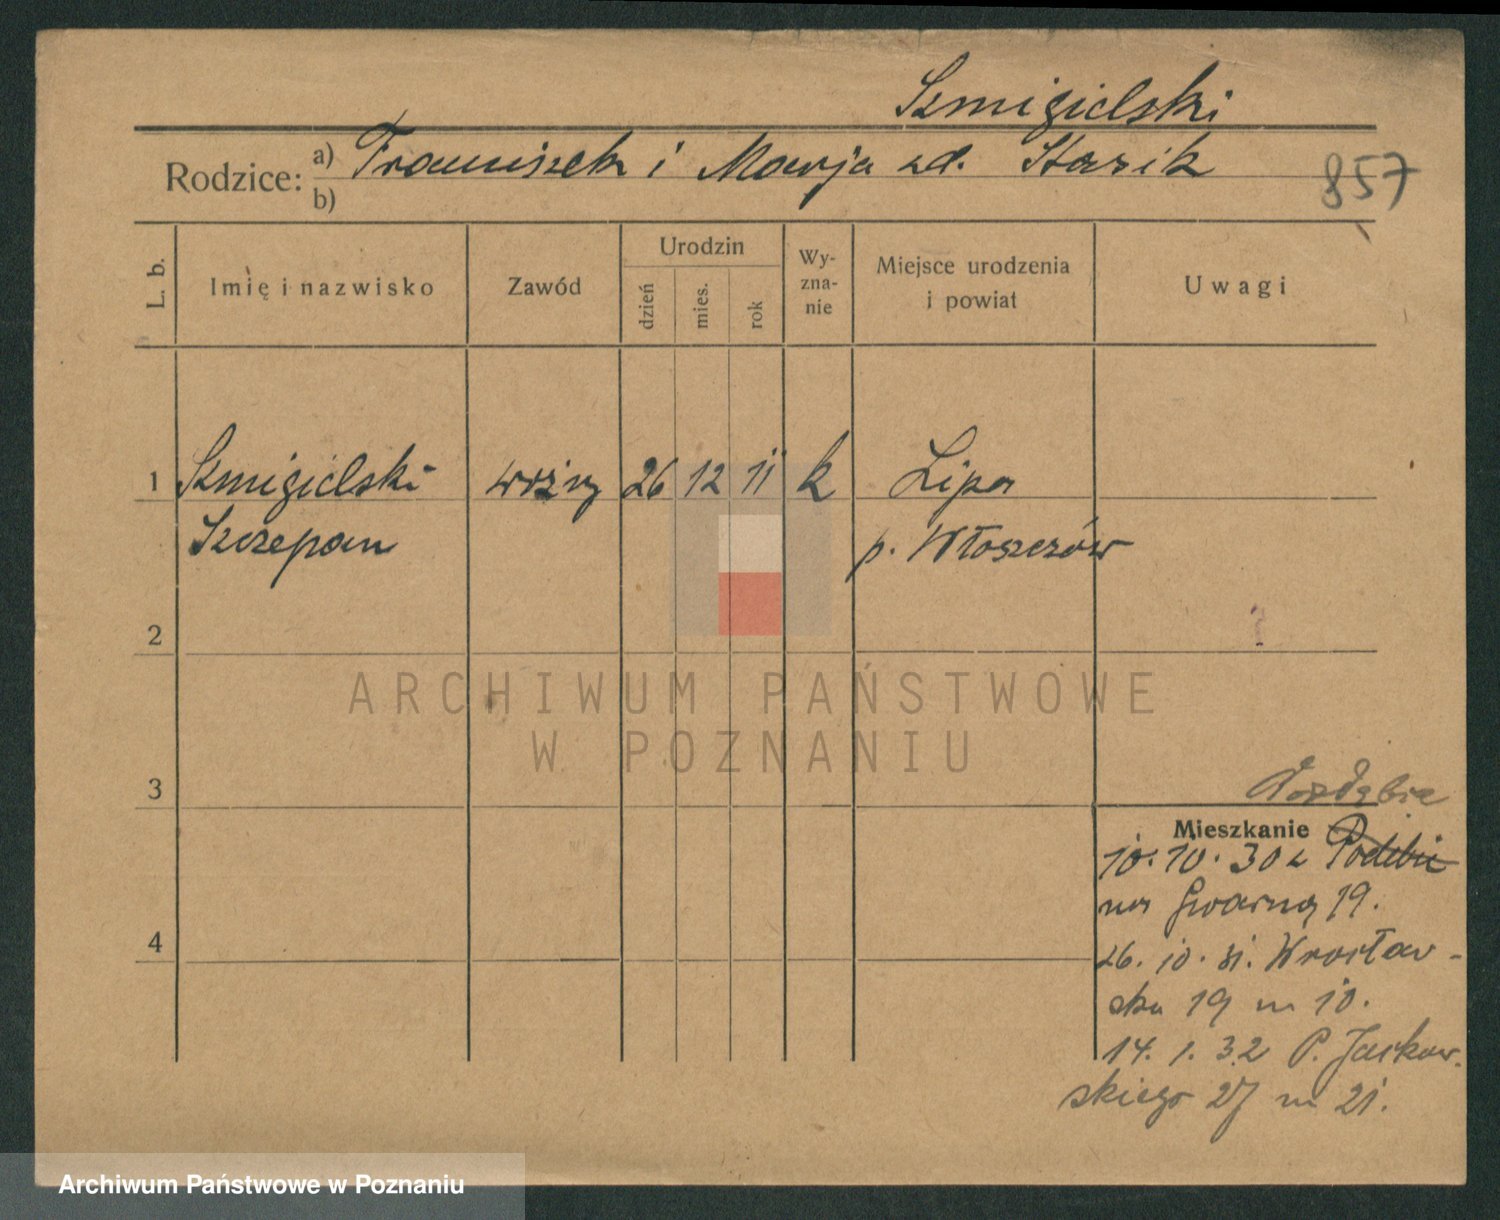 Szmigielski
Rodzice: a) Franciszek i Marja zd. Stasik
b)
857
L. b.
Imię i nazwisko
Zawód
Urodzin
dzień
mies.
rok
Wy-
zna-
nie
Miejsce urodzenia
i powiat
Uwagi
1 Szmigielski woźny 26 12 11 k Lipa
Szczepan p. Włoszczów
2
ARCHIWUM PAŃSTWOWE
W POZNANIU
3
Mieszkanie
10. 10. 30 z
na Gwarną 19.
26. 10. 31. Wrocław-
ska 19 m 10.
14. 1. 32 P. Jackow-
skiego 27 m 21.
4
Archiwum Państwowe w Poznaniu